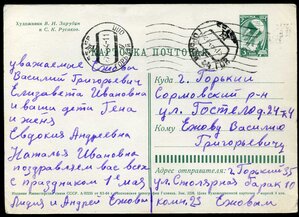 Художники В. И. Зарубин
и С. К. Русаков.
КАРТОЧКА ПОЧТОВАЯ
уважаемые Ежовы
Василий Григорьевич
Елизавета Ивановна
и ваши дети Гена
и женя
Евдокия Андреевна
Наталья Ивановна
поздравляем вас всех
с праздником 1е мая
Лидия и Андрей Ежовы
Куда г. Горький
Сормовский р-н
ул.
Кому Ежову Василию
Григорьевичу
Адрес отправителя: г. Горький 35
ул Столярная барак 10
комн 23 Ежовым
Министерство связи СССР